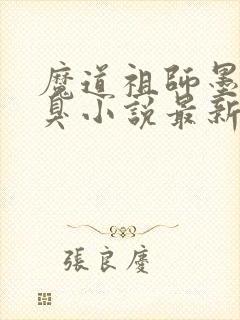 魔道祖師墨
臭小說最新
張良慶